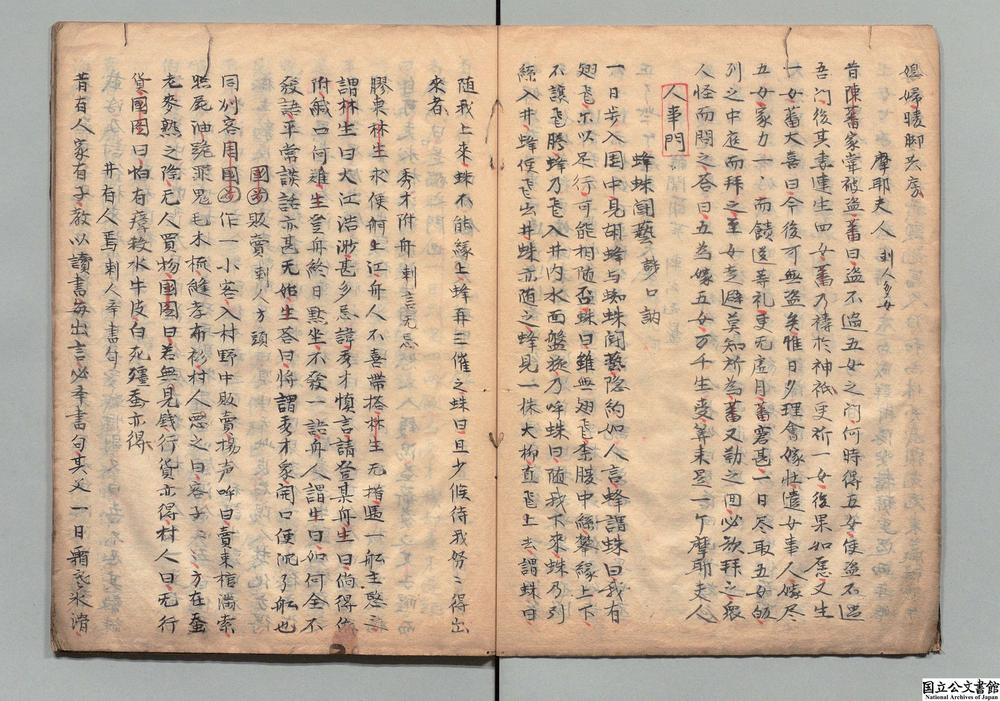 媳婦暖脚
摩耶夫人 刺人多女
昔陳蕃家常被盗蕃曰盗不過五女之門何時得五女使盗不過
吾門後其妻連生四女蕃乃禱於神祇更祈一女後果如應又生
一女蕃大喜曰今後可無盗矣惟日夕理會嫁壯遣女事人縁尽
五女家力一而饋送等礼更无虚月蕃窘甚一日尽取五女
列之中庭而拜之至女走避莫知所為蕃又勤之回必欲拜之衆
人怪而問之答曰五為嫁五女万千生受算来是一个摩耶夫人
人事門
蜂蛛闘藝 訴口訥
一日歩入園中見胡蜂与蜘蛛闘藝隠約如人言蜂謂蛛曰我有
翅飛尓以足行可能相随否蛛曰雖無翅飛奈腹中絲攀縁上下
不譲飛騰蜂乃飛入井内水面盤旋乃呼蛛曰随我下来蛛乃列
絲入井蜂便飛出井蛛亦随之蜂見一株大柳直飛上去謂蛛曰
随我上来蛛不能縁上蜂再三催之蛛曰且少候待我努々得出
来者
秀才附舟 刺言无忌
膠東林生求便舸上江舟人不喜帯搭林生无措遇一舡主愍諾
謂林生曰大江浩渺甚多忌諱秀才慎言請登某舟生曰倘得備
附緘口何難生登舟終日黙坐不發一語舟人謂生曰如何全不
發語平常談話亦甚无妨生答曰将謂秀才家開口便沉了舡也
圓圓販賣 刺人方頭
同州客周圓圓作一小客入村野中販賣揚声呼曰賣束棺満索
毛木梳縫孝布衫村人悪之曰客子方在蚕
老麥熟之際无人買物圓圓曰若無見錢行貨亦得村人曰无行
貨圓圓曰怕有瘴殺水牛皮白死殭蚕亦得
井有人焉 刺人牽書句
昔有人家有子教以讀書毎出言必牽書句其父一日霜水滑
国立公文書館
National Archives of Japan